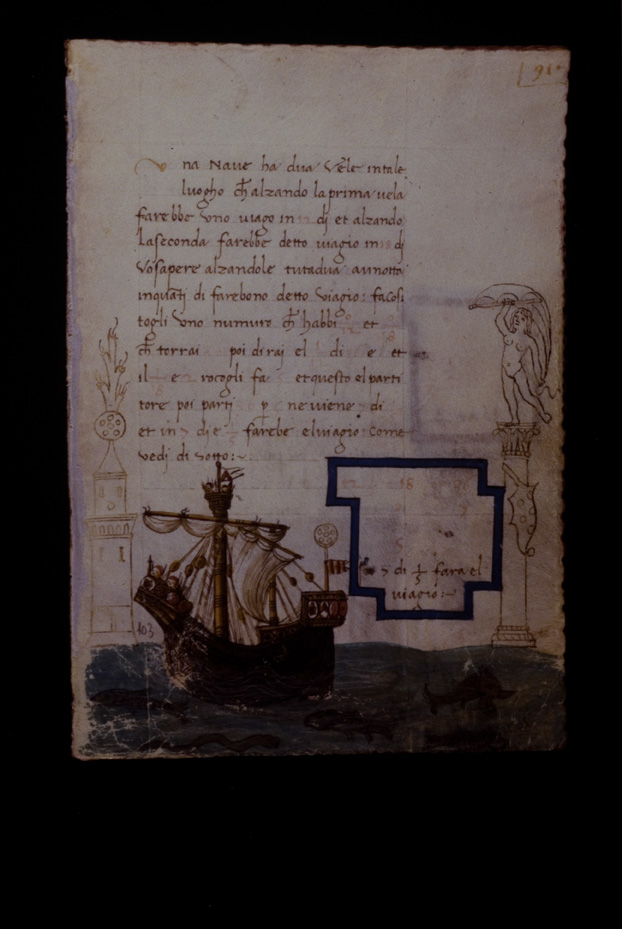 91
na Nave ha dua Vele in tale
luogho ch̄ alzando la prima vela
farebbe vno viago in 12 dj et alzando
La seconda farebbe detto viagio in 18 dj
Vo sapere alzandole tutadua aunotta
inquatj di farebono detto viagio: facosi
togli vno numuro ch̄ habbi et
ch̄ torrai poi diraj el di e et
il e rocogli fa et questo el parti
tore poi parti p ne viene 7 di
et in 7 di e farebe el viagio Come
vedi di sotto:~
18
7 di 1/5 fara el
viagio:~
103